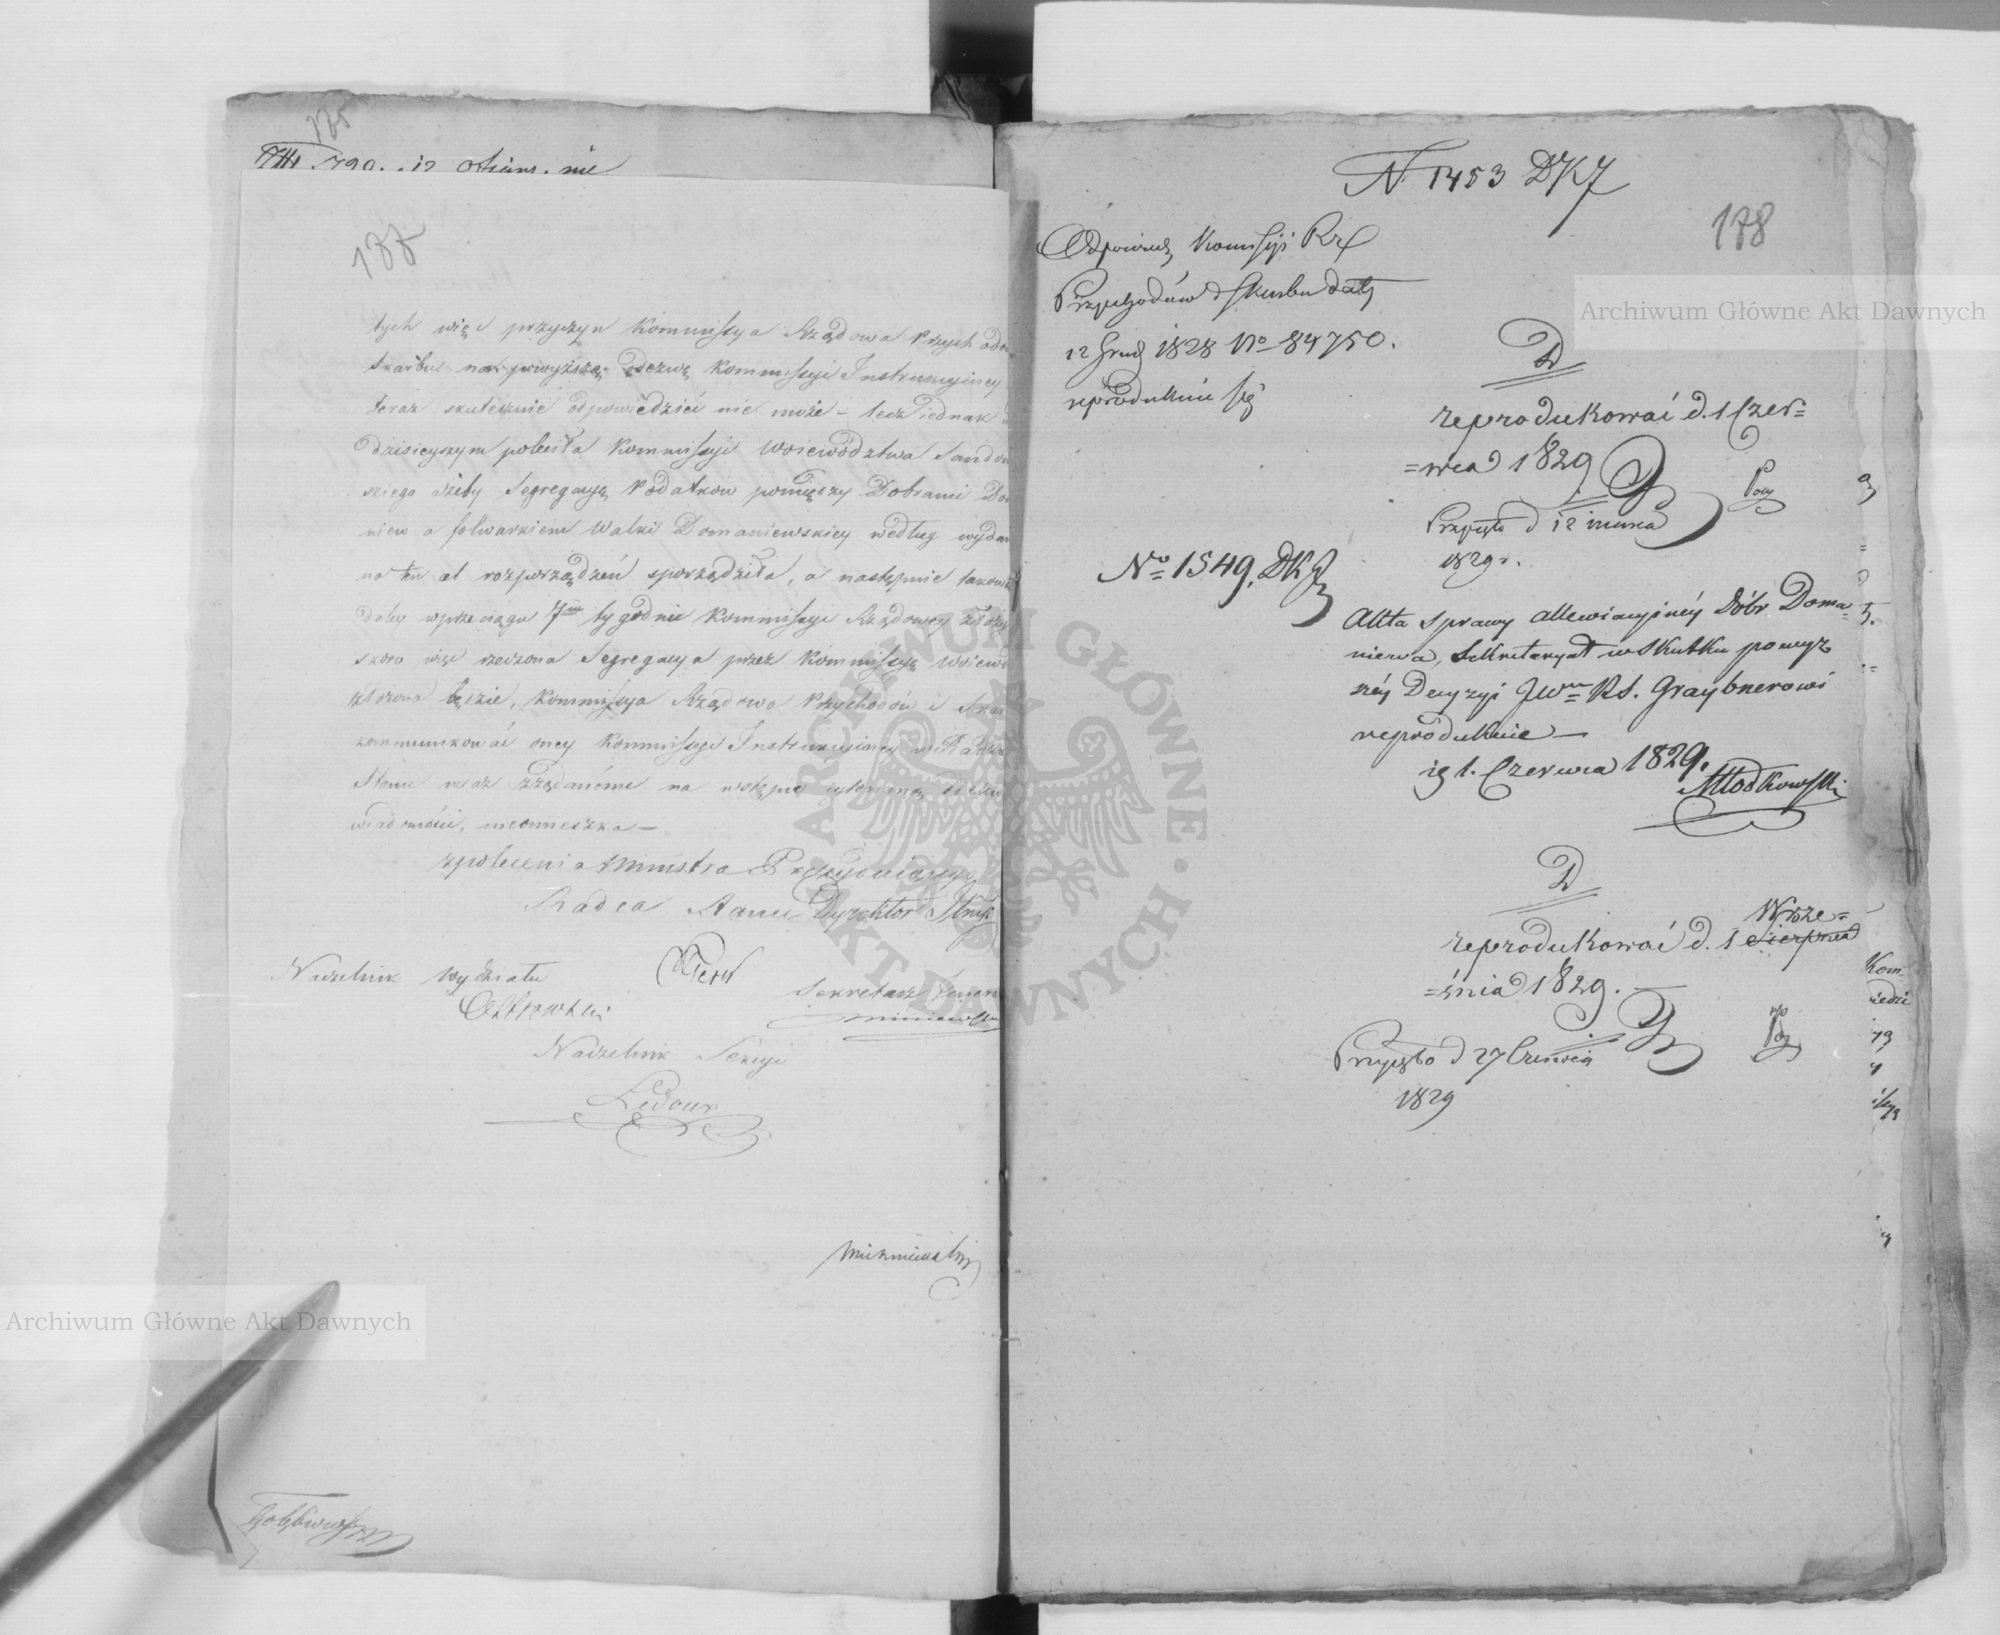 125
177
tych więc przyczyn Kommissya Rządowa Przychodów
Skarbu na powyższą odezwę Kommissyi Instrukcyiney
teraz skutecznie odpowiedzieć nie może – lecz iednak
dzisieyszym poleciła Kommissyi Woiewództwa Sandom
skiego ażeby Segregacyą Podatków pomiędzy Dobrami Do
niew a folwarkiem Walki Domaniewskiey według wydan
na ten cel rozporządzeń sporządziła, a następnie takow
daley w przeciągu 7m tygodniu Kommissyi Rządowey złożyła
skoro więc rzeczona Segregacya przez Kommissyą Woiewó
złożona będzie, Kommissya Rządowa Przychodów i Skar
kommunikować oney Kommissyi Instrukcyiney w Radzie
Stanu wraz z żądanemi na wstępie cytowaną odezwą
wiadomości, nieomieszka –
z polecenia Ministra Prezyduiącego
Radca Stanu Dyrektor
Naczelnik Wydziału
Sekretarz Jener
Naczelnik Sekcyi
Ledoux
N 1453 DKJ
178
Odpowiedź Komissyi Rz
Przychodów i Skarbu daty
12 Grud 1828 No 84750.
reprodukuie się
D
reprodukować d. 1 Czer=
=wca 1829
Przyięto d 12 marca
1829 r.
No 1549. DKJ
Akta sprawy allewiacyinéy Dóbr Doma=
niewa, Sekretaryat w skutku powyż
széy Decyzyi JWmu RS. Graybnerowi
reprodukuie –
ig 1. Czerwca 1829.
Młodkowski
D
Wrze=
reprodukować d. 1 Sierpnia
=śnia 1829. –
Przyięto d 27 Czerwca
1829
Archiwum Główne Akt Dawnych
Archiwum Główne Akt Dawnych
ARCHIWUM GŁÓWNE · AKT DAWNYCH ·